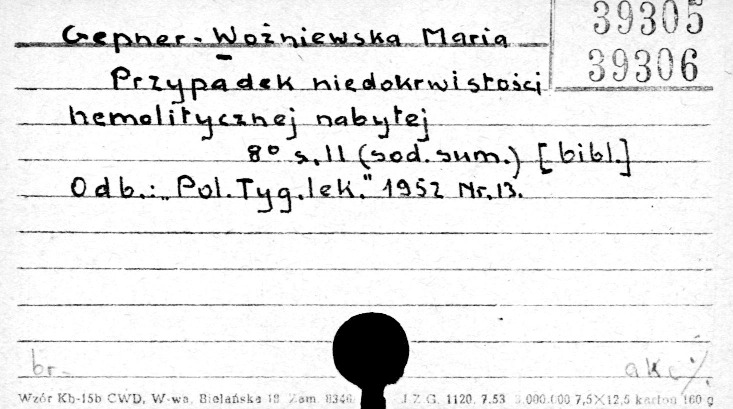 39305
Gepner-Woźniewska Maria
39306
Przypadek niedokrwistości
hemolitycznej nabytej
8° s. 11 (sod. sum.) [bibl.]
Odb.: "Pol. Tyg. lek." 1952 Nr. 13.
br. akc.
Wzór Kb-15b CWD, W-wa, Bielańska 18 Zam. 8346 J Z G. 1120. 7.53 3.000.000 7,5×12,5 karton 160 g